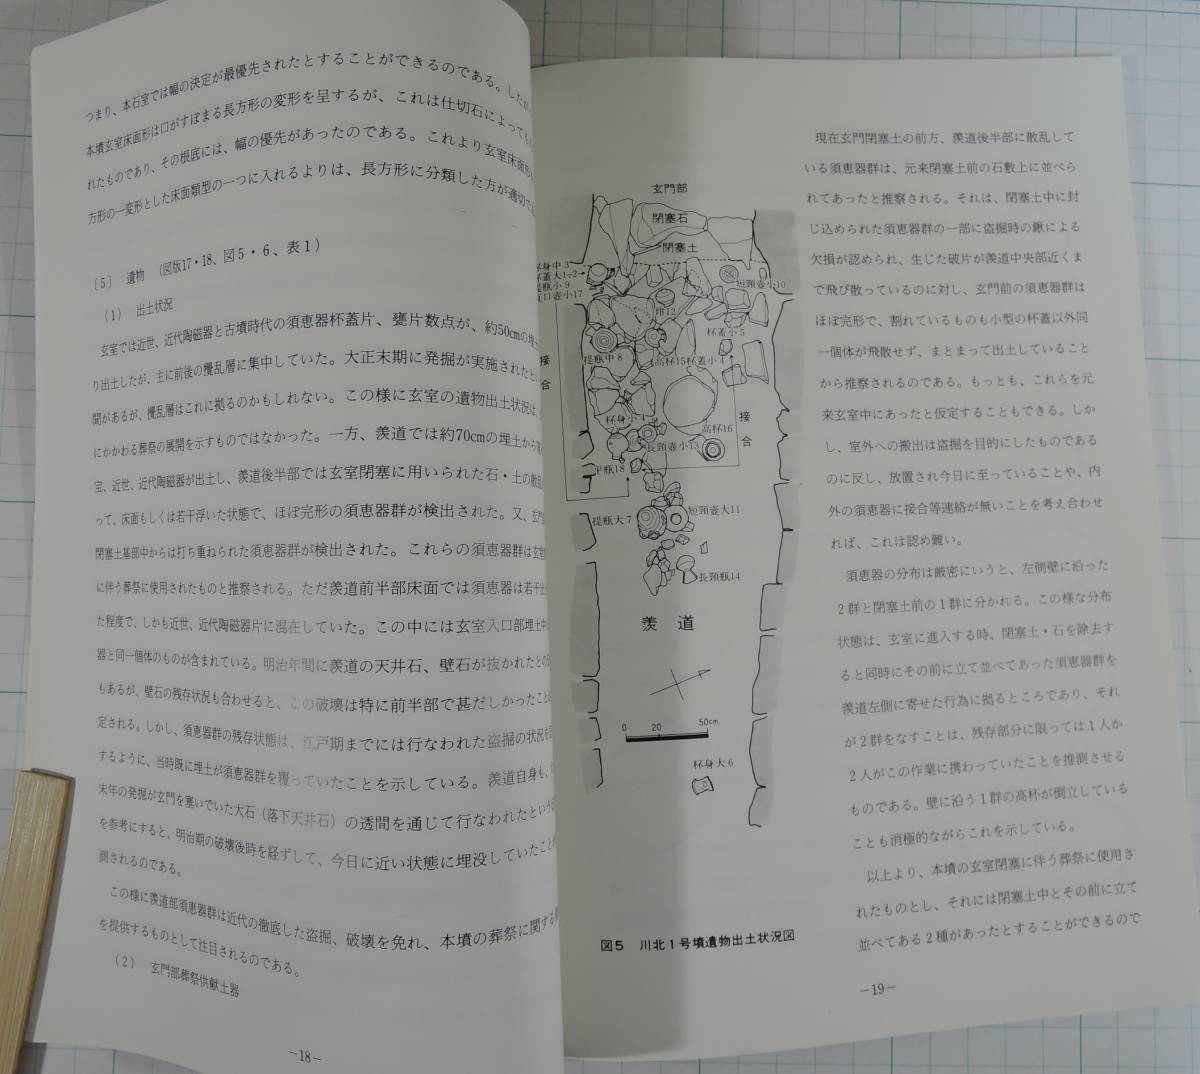 つまり、本石室では幅の決定が最優先されたとすることができるのである。したが
本墳玄室床面形は口がすぼまる長方形の変形を呈するが、これは仕切石によっても
れたものであり、その根底には、幅の優先があったのである。これより玄室床面形
方形の一変形とした床面類型の一つに入れるよりは、長方形に分類した方が適切で
〔5〕 遺物 (図版17・18、図5・6、表1)
(1) 出土状況
玄室では近世、近代陶磁器と古墳時代の須恵器杯蓋片、甕片数点が、約50cmの埋土
り出土したが、主に前後の攪乱層に集中していた。大正末期に発掘が実施されたとい
聞があるが、攪乱層はこれに拠るのかもしれない。この様に玄室の遺物出土状況は、
にかかわる葬祭の展開を示すものではなかった。一方、羨道では約70cmの埋土から
宝、近世、近代陶磁器が出土し、羨道後半部では玄室閉塞に用いられた石・土の散乱
って、床面もしくは若干浮いた状態で、ほぼ完形の須恵器群が検出された。又、玄門
閉塞土基部中からは打ち重ねられた須恵器群が検出された。これらの須恵器群は玄室
に伴う葬祭に使用されたものと推察される。ただ羨道前半部床面では須恵器は若干出
た程度で、しかも近世、近代陶磁器片に混在していた。この中には玄室入口部埋土中
器と同一個体のものが含まれている。明治年間に羨道の天井石、壁石が抜かれたとの
もあるが、壁石の残存状況も合わせると、この破壊は特に前半部で甚だしかったこと
定される。しかし、須恵器群の残存状態は、江戸期までには行なわれた盗掘の状況を
するように、当時既に埋土が須恵器群を覆っていたことを示している。羨道自身も、
末年の発掘が玄門を塞いでいた大石(落下天井石)の透間を通じて行なわれたという
を参考にすると、明治期の破壊後時を経ずして、今日に近い状態に埋没していたことが
測されるのである。
この様に羨道部須恵器群は近代の徹底した盗掘、破壊を免れ、本墳の葬祭に関する
を提供するものとして注目されるのである。
(2) 玄門部葬祭供献土器
―18―
玄門部
閉塞石
閉塞土
杯身中3
杯蓋大1・2
提瓶小9
口壺小17
短頸壺小10
𤭯12
杯蓋小5
提瓶中8
高杯15
杯蓋小4
接合
杯身小4
高杯16
接合
長頸壺小13
平瓶18
提瓶大7
短頸壺大11
長頸瓶14
羨道
0 20 50cm
杯身大6
図5 川北1号墳遺物出土状況図
現在玄門閉塞土の前方、羨道後半部に散乱して
いる須恵器群は、元来閉塞土前の石敷上に並べら
れてあったと推察される。それは、閉塞土中に封
じ込められた須恵器群の一部に盗掘時の鍬による
欠損が認められ、生じた破片が羨道中央部近くま
で飛び散っているのに対し、玄門前の須恵器群は
ほぼ完形で、割れているものも小型の杯蓋以外同
一個体が飛散せず、まとまって出土していること
から推察されるのである。もっとも、これらを元
来玄室中にあったと仮定することもできる。しか
し、室外への搬出は盗掘を目的にしたものである
のに反し、放置され今日に至っていることや、内
外の須恵器に接合等連絡が無いことを考え合わせ
れば、これは認め難い。
須恵器の分布は厳密にいうと、左側壁に沿った
2群と閉塞土前の1群に分かれる。この様な分布
状態は、玄室に進入する時、閉塞土・石を除去す
ると同時にその前に立て並べてあった須恵器群を
羨道左側に寄せた行為に拠るところであり、それ
が2群をなすことは、残存部分に限っては1人か
2人がこの作業に携わっていたことを推測させる
ものである。壁に沿う1群の高杯が倒立している
ことも消極的ながらこれを示している。
以上より、本墳の玄室閉塞に伴う葬祭に使用さ
れたものとし、それには閉塞土中とその前に立て
並べてある2種があったとすることができるので
―19―